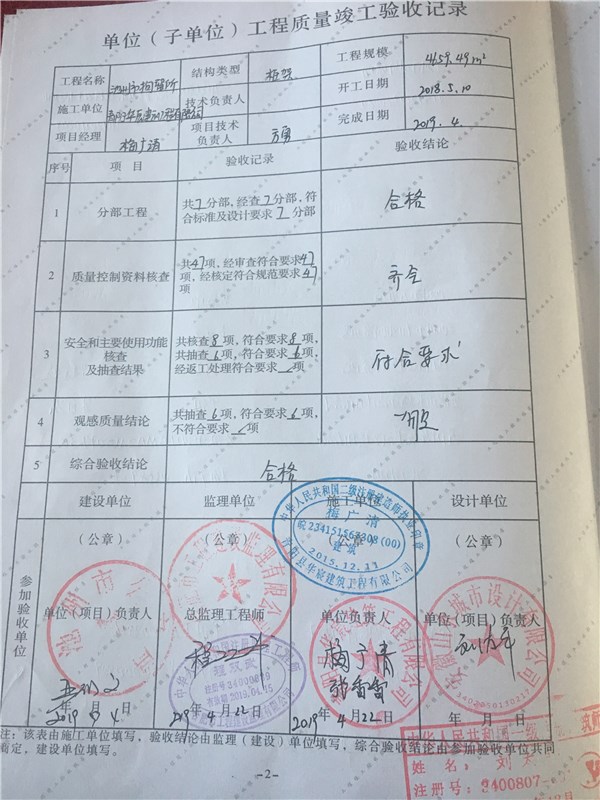 单位（子单位）工程质量竣工验收记录
工程名称 池州市拘留所 结构类型 框架 工程规模 4659.49m²
施工单位 技术负责人 开工日期 2018.5.10
项目经理 梅广清 项目技术负责人 方勇 完成日期 2019.4
序号 项目 验收记录 验收结论
1 分部工程 共7分部，经查7分部，符
合标准及设计要求7分部 合格
2 质量控制资料核查 共47项，经审查符合要求47
项，经核定符合规范要求47
项 齐全
3 安全和主要使用功能
核查
及抽查结果 共核查8项，符合要求8项，
共抽查6项，符合要求6项，
经返工处理符合要求／项 符合要求
4 观感质量结论 共抽查6项，符合要求6项，
不符合要求／项 一般
5 综合验收结论 合格
参加验收单位
建设单位 监理单位 施工单位 设计单位
（公章） （公章） （公章） （公章）
中华人民共和国二级注册建造师执业印章
梅广清
皖234151563308(00)
建筑
2015.12.11
单位(项目)负责人 总监理工程师 单位负责人 单位(项目)负责人
程双武
注册号34000879
有效期2019.04.15
梅广清
张雷雷
2019年 4 2019年4月22日 2019年4月22日 年 月 日
注：该表由施工单位填写，验收结论由监理（建设）单位填写，综合验收结论由参加验收单位共同
商定，建设单位填写。
中华人民共和国一级
姓名：刘
注册号：3400807-
-2-